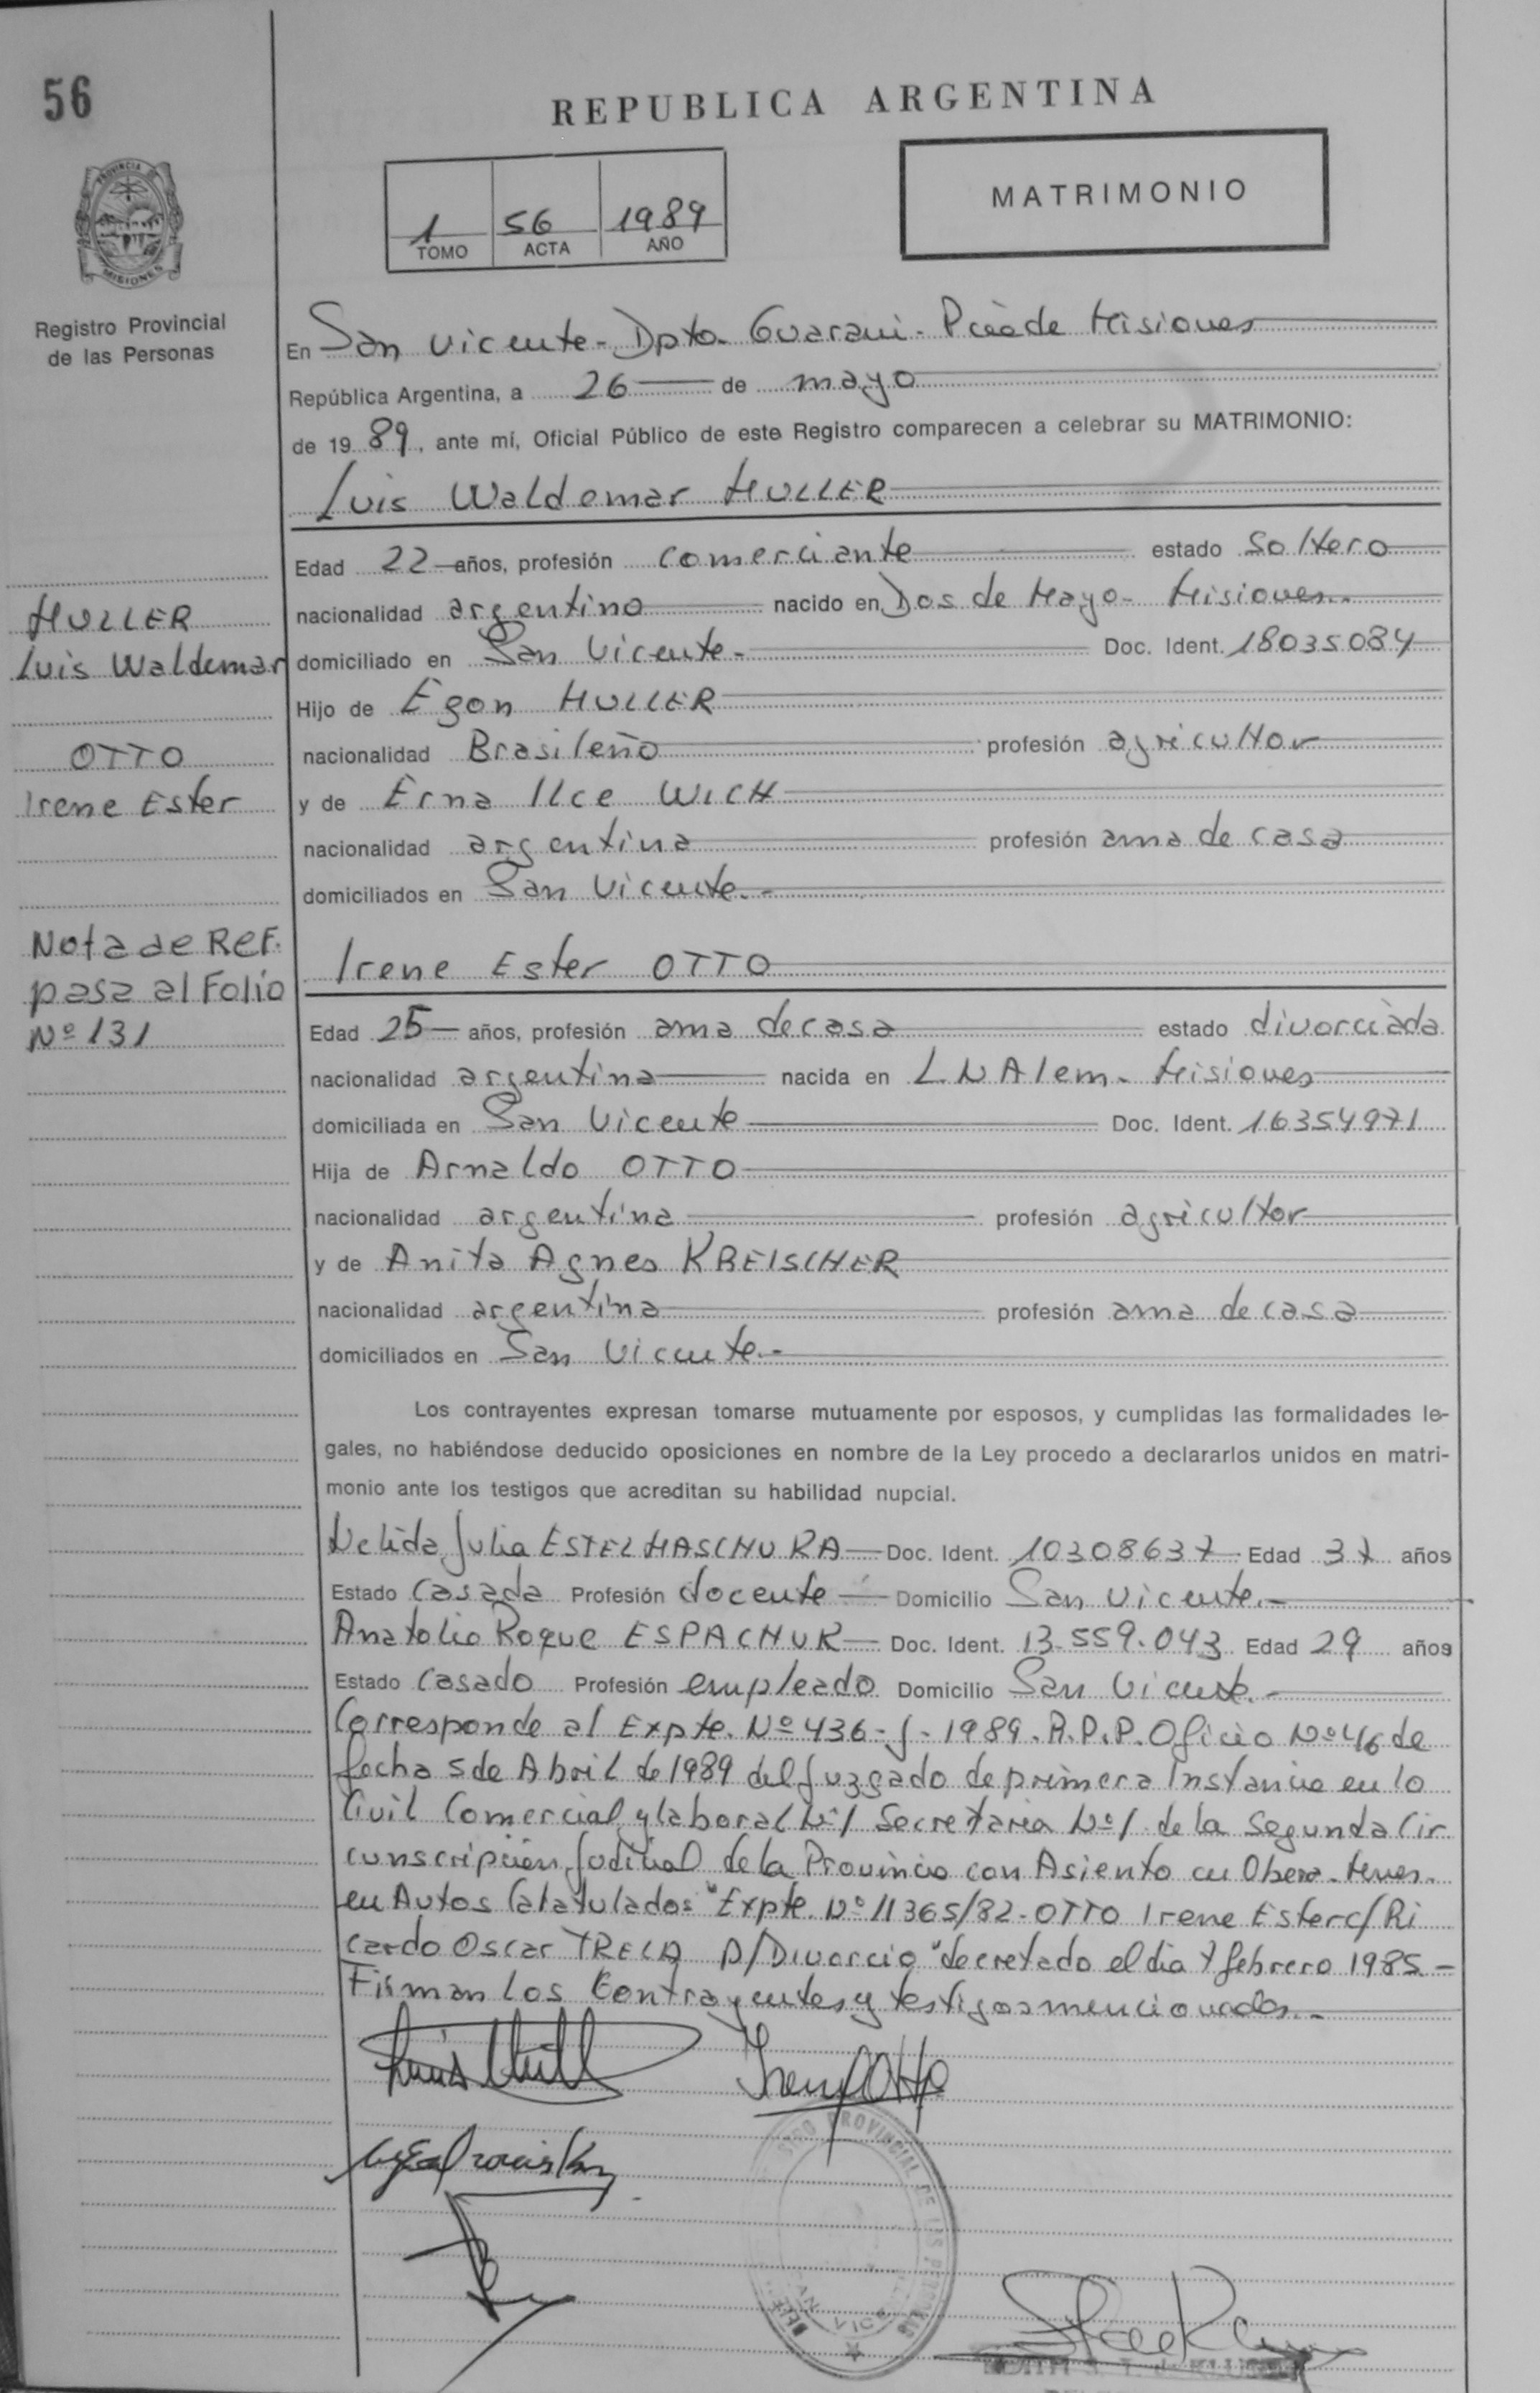 56
REPUBLICA ARGENTINA
PROVINCIA DE
MISIONES
1 TOMO
56 ACTA
1989 AÑO
MATRIMONIO
Registro Provincial
de las Personas
En San Vicente - Dpto. Guarani - Pcia de Misiones
República Argentina, a 26 de mayo
de 1989, ante mí, Oficial Público de este Registro comparecen a celebrar su MATRIMONIO:
Luis Waldemar HULLER
Edad 22 años, profesión comerciante estado soltero
nacionalidad argentino nacido en Dos de Mayo - Misiones.-
HULLER
Luis Waldemar
domiciliado en San Vicente.- Doc. Ident. 18035084
Hijo de Egon HULLER
nacionalidad Brasileño profesión agricultor
OTTO
Irene Ester
y de Erna Ilce WICH
nacionalidad argentina profesión ama de casa
domiciliados en San Vicente.-
Nota de Ref.
pasa al Folio
Nº 131
Irene Ester OTTO
Edad 25 años, profesión ama de casa estado divorciada
nacionalidad argentina nacida en L N Alem - Misiones
domiciliada en San Vicente Doc. Ident. 16354971
Hija de Arnaldo OTTO
nacionalidad argentina profesión agricultor
y de Anita Agnes KREISCHER
nacionalidad argentina profesión ama de casa
domiciliados en San Vicente.-
Los contrayentes expresan tomarse mutuamente por esposos, y cumplidas las formalidades le-
gales, no habiéndose deducido oposiciones en nombre de la Ley procedo a declararlos unidos en matri-
monio ante los testigos que acreditan su habilidad nupcial.
Nelida Julia ESTELMASCHURA Doc. Ident. 10308637 Edad 37 años
Estado Casada Profesión docente Domicilio San Vicente.-
Anatolio Roque ESPACHUK Doc. Ident. 13.559.043 Edad 29 años
Estado Casado Profesión empleado Domicilio San Vicente.-
Corresponde al Expte. Nº 436-J-1989. R.P.P. Oficio Nº 416 de
fecha 5 de Abril de 1989 del Juzgado de primera Instancia en lo
Civil Comercial y laboral Nº 1 Secretaria Nº 1 de la Segunda Cir
cunscripcion Judicial de la Provincia con Asiento en Obera
en Autos Caratulados "Expte. Nº 11365/82 - OTTO Irene Ester c/ Ri
cardo Oscar TRELA D/Divorcio" decretado el dia 7 febrero 1985.-
Firman los Contrayentes y testigos mencionados.-